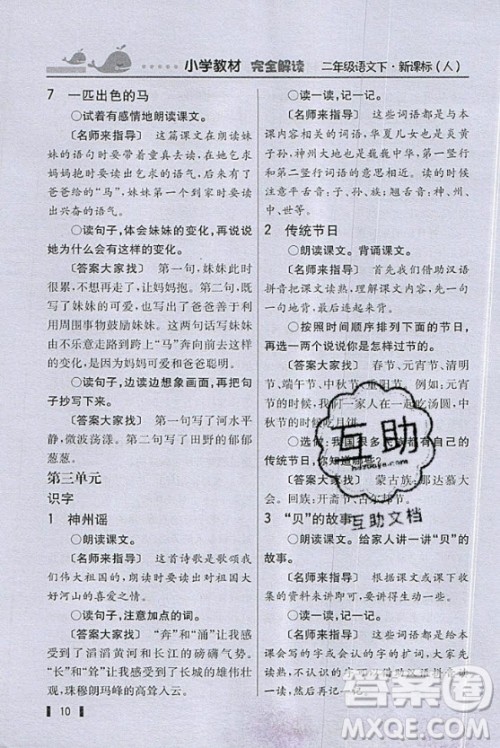 小学教材 完全解读 二年级语文下·新课标(人)
7 一匹出色的马
○试着有感情地朗读课文。
〔名师来指导〕 这篇课文在朗读妹
妹的语句时要带着乞求的语气,在她乞求
妈妈抱她时要有撒娇和疲劳的语气,在看到
爸爸给她的“马”,
出兴奋的语气。
○读句子,体会妹妹的变化,再说说为
什么她会有这样的变化。
〔答案大家找〕 第一句,妹妹很疲
劳,不想再走了,让妈妈抱。第二句,写
出了妹妹的可爱,也写出了爸爸善于利
用周围事物鼓励妹妹。第三句,写出妹妹
由不乐意走路,到骑上“马”蹦蹦跳跳地
回家,是因为妈妈和爸爸聪明。
○读句子,边读边想象画面,再把句
子抄写下来。
〔答案大家找〕 第一句写了河水平
静,微波荡漾。第二句写了田野的郁郁
葱葱。
第三单元
识字
1 神州谣
○朗读课文。
〔名师来指导〕 这首诗歌是歌唱我
们伟大祖国的,朗读时要读出对祖国大
好河山的喜爱之情。
○读句子,注意加点的词。
〔答案大家找〕 “奔”和“涌”让我感受
到了滔滔黄河和长江,它们日夜奔流不息。
“长”和“耸”让我感受到了长城的雄伟壮
观,珠穆朗玛峰的高耸入云。
10
○读一读,记一记。
〔名师来指导〕 这些词语都是与本
课内容相关的词语,华夏儿女也是炎黄
子孙,神州大地也是巍巍中华。第一竖行
和第二竖行词语的意思相近。读的时候
注意平舌音、翘舌音、后鼻音,如:神、州、
中、世等。
2 传统节日
○朗读课文。背诵课文。
〔名师来指导〕 首先我们借助汉语
拼音把课文读熟,理解课文内容,一个节
日一句地背。
○按照时间顺序排列下面的节日,
再选一个说说你是怎样过节的。
〔答案大家找〕 春节、元宵节、清
明节、端午节、中秋节、重阳节。例如,元宵
节的时候,我们一家人在一起吃汤圆;中
秋节的时候,我们吃月饼。
○选做:我国是个多民族国家,
你知道哪些民族的传统节日?
〔答案大家找〕 蒙古族:那达慕大
会。回族:开斋节、古尔邦节。
3 “贝”的故事
○朗读课文。给家人讲一讲“贝”的
故事。
〔名师来指导〕 根据课文内容或收集
的资料来讲即可,
○读一读,记一记。
〔名师来指导〕
本课会写的字
后
再互相记一记。
互助
互助文档
答案圈
MXQE.COM